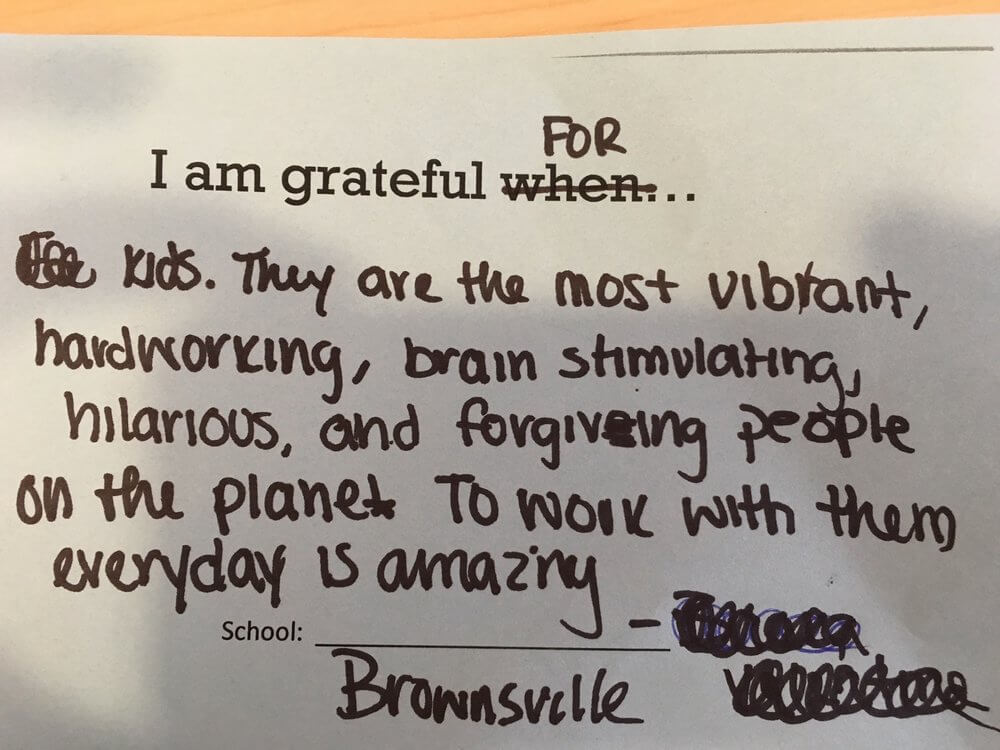 FOR
I am grateful when...
kids. They are the most vibrant,
hardworking, brain stimulating,
hilarious, and forgiveing people
on the planet To work with them
everyday is amazing
School:
Brownsville